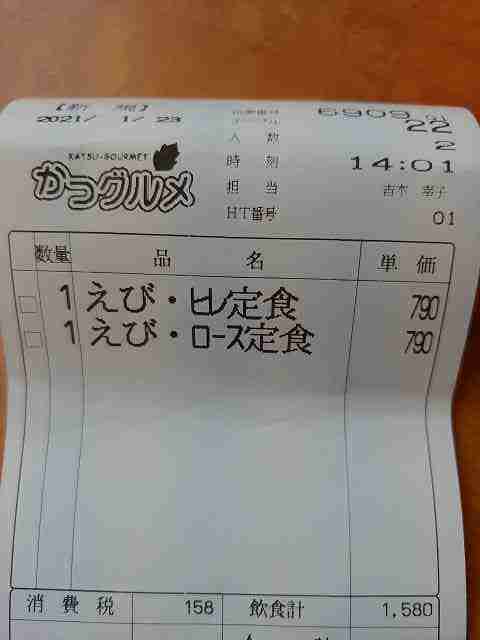 【新規】
2021/ 1/23
6909
22
人数 2
時刻 14:01
担当 吉木 幸子
HT番号 01
KATSU-GOURMET
かつグルメ
数量 品名 単価
1 えび・ヒレ定食 790
1 えび・ロース定食 790
消費税 158 飲食計 1,580